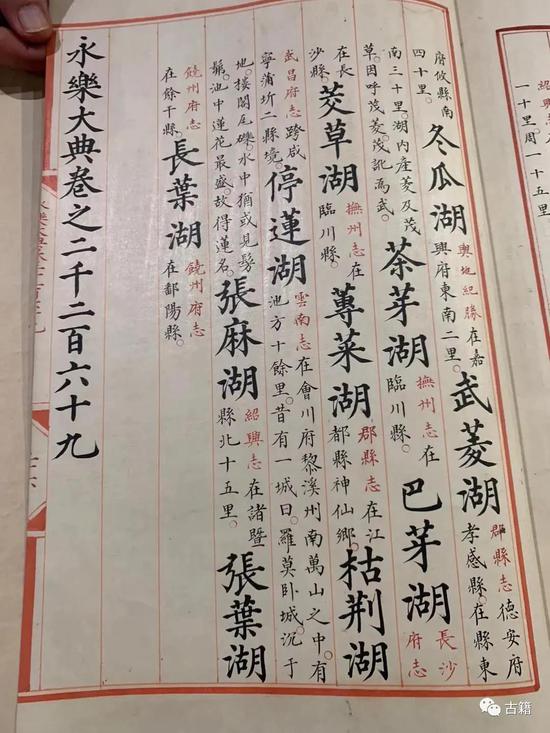 府攸縣南四十里。冬瓜湖輿地紀勝在嘉興府東南二里。武菱湖郡縣志德安府孝感縣。在縣東
南三十里。湖内產菱及茂草。因呼茂菱。茂訛爲武。茶芽湖撫州志在臨川縣。巴芽湖長沙府志
在長沙縣。茭草湖撫州志在臨川縣。蓴菜湖郡縣志在江都縣神仙鄉。枯荆湖
武昌府志跨咸寧蒲圻二縣境。停蓮湖雲南志在會川府黎溪州南萬山之中。有池方十餘里。昔有一城曰。羅莫卧城。沉于
地。樓閣瓦礫水中猶或見髣髴。池中蓮花最盛。故得蓮名。張麻湖紹興志在諸暨縣北十五里。張葉湖
饒州府志在餘干縣。長葉湖饒州府志在鄱陽縣。
永樂大典卷之二千二百六十九
一十里周一十五
古籍